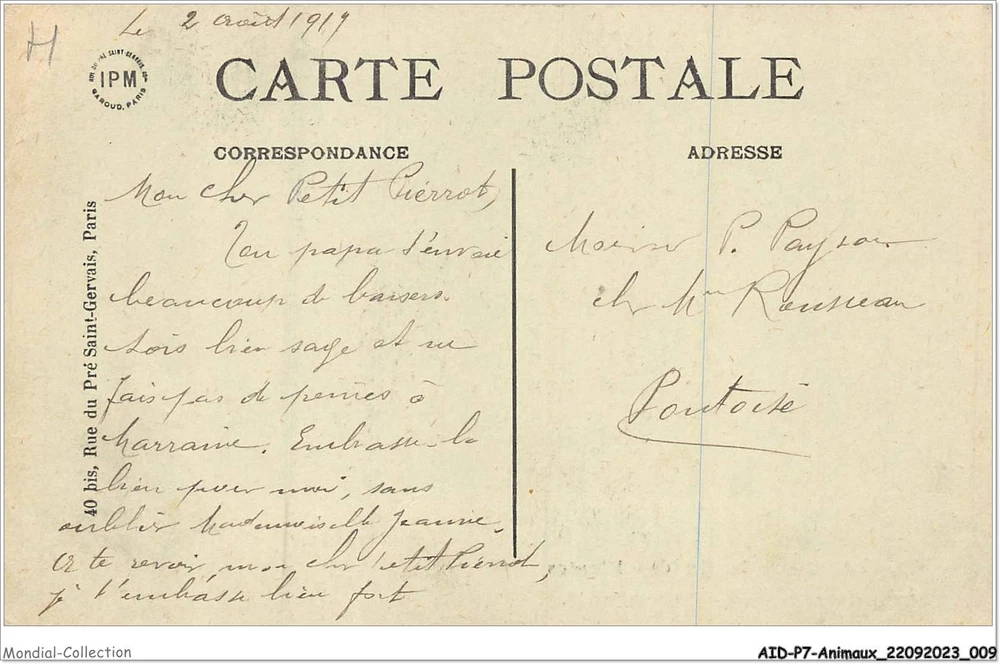 Le 2 août 1917
H
IPM
GAROUD. PARIS
CARTE POSTALE
CORRESPONDANCE
ADRESSE
40 bis, Rue du Pré Saint-Gervais, Paris
Mon cher Petit Pierrot,
Ton papa t'envoie
beaucoup de baisers.
Sois bien sage et ne
fais pas de peines à
Marraine. Embrasse-la
bien pour moi, sans
oublier Mademoiselle Jeanne.
A te revoir, mon cher Petit Pierrot,
je t'embrasse bien fort
P.
ch Mme Rousseau
Pontoise
Mondial-Collection
AID-P7-Animaux_22092023_009